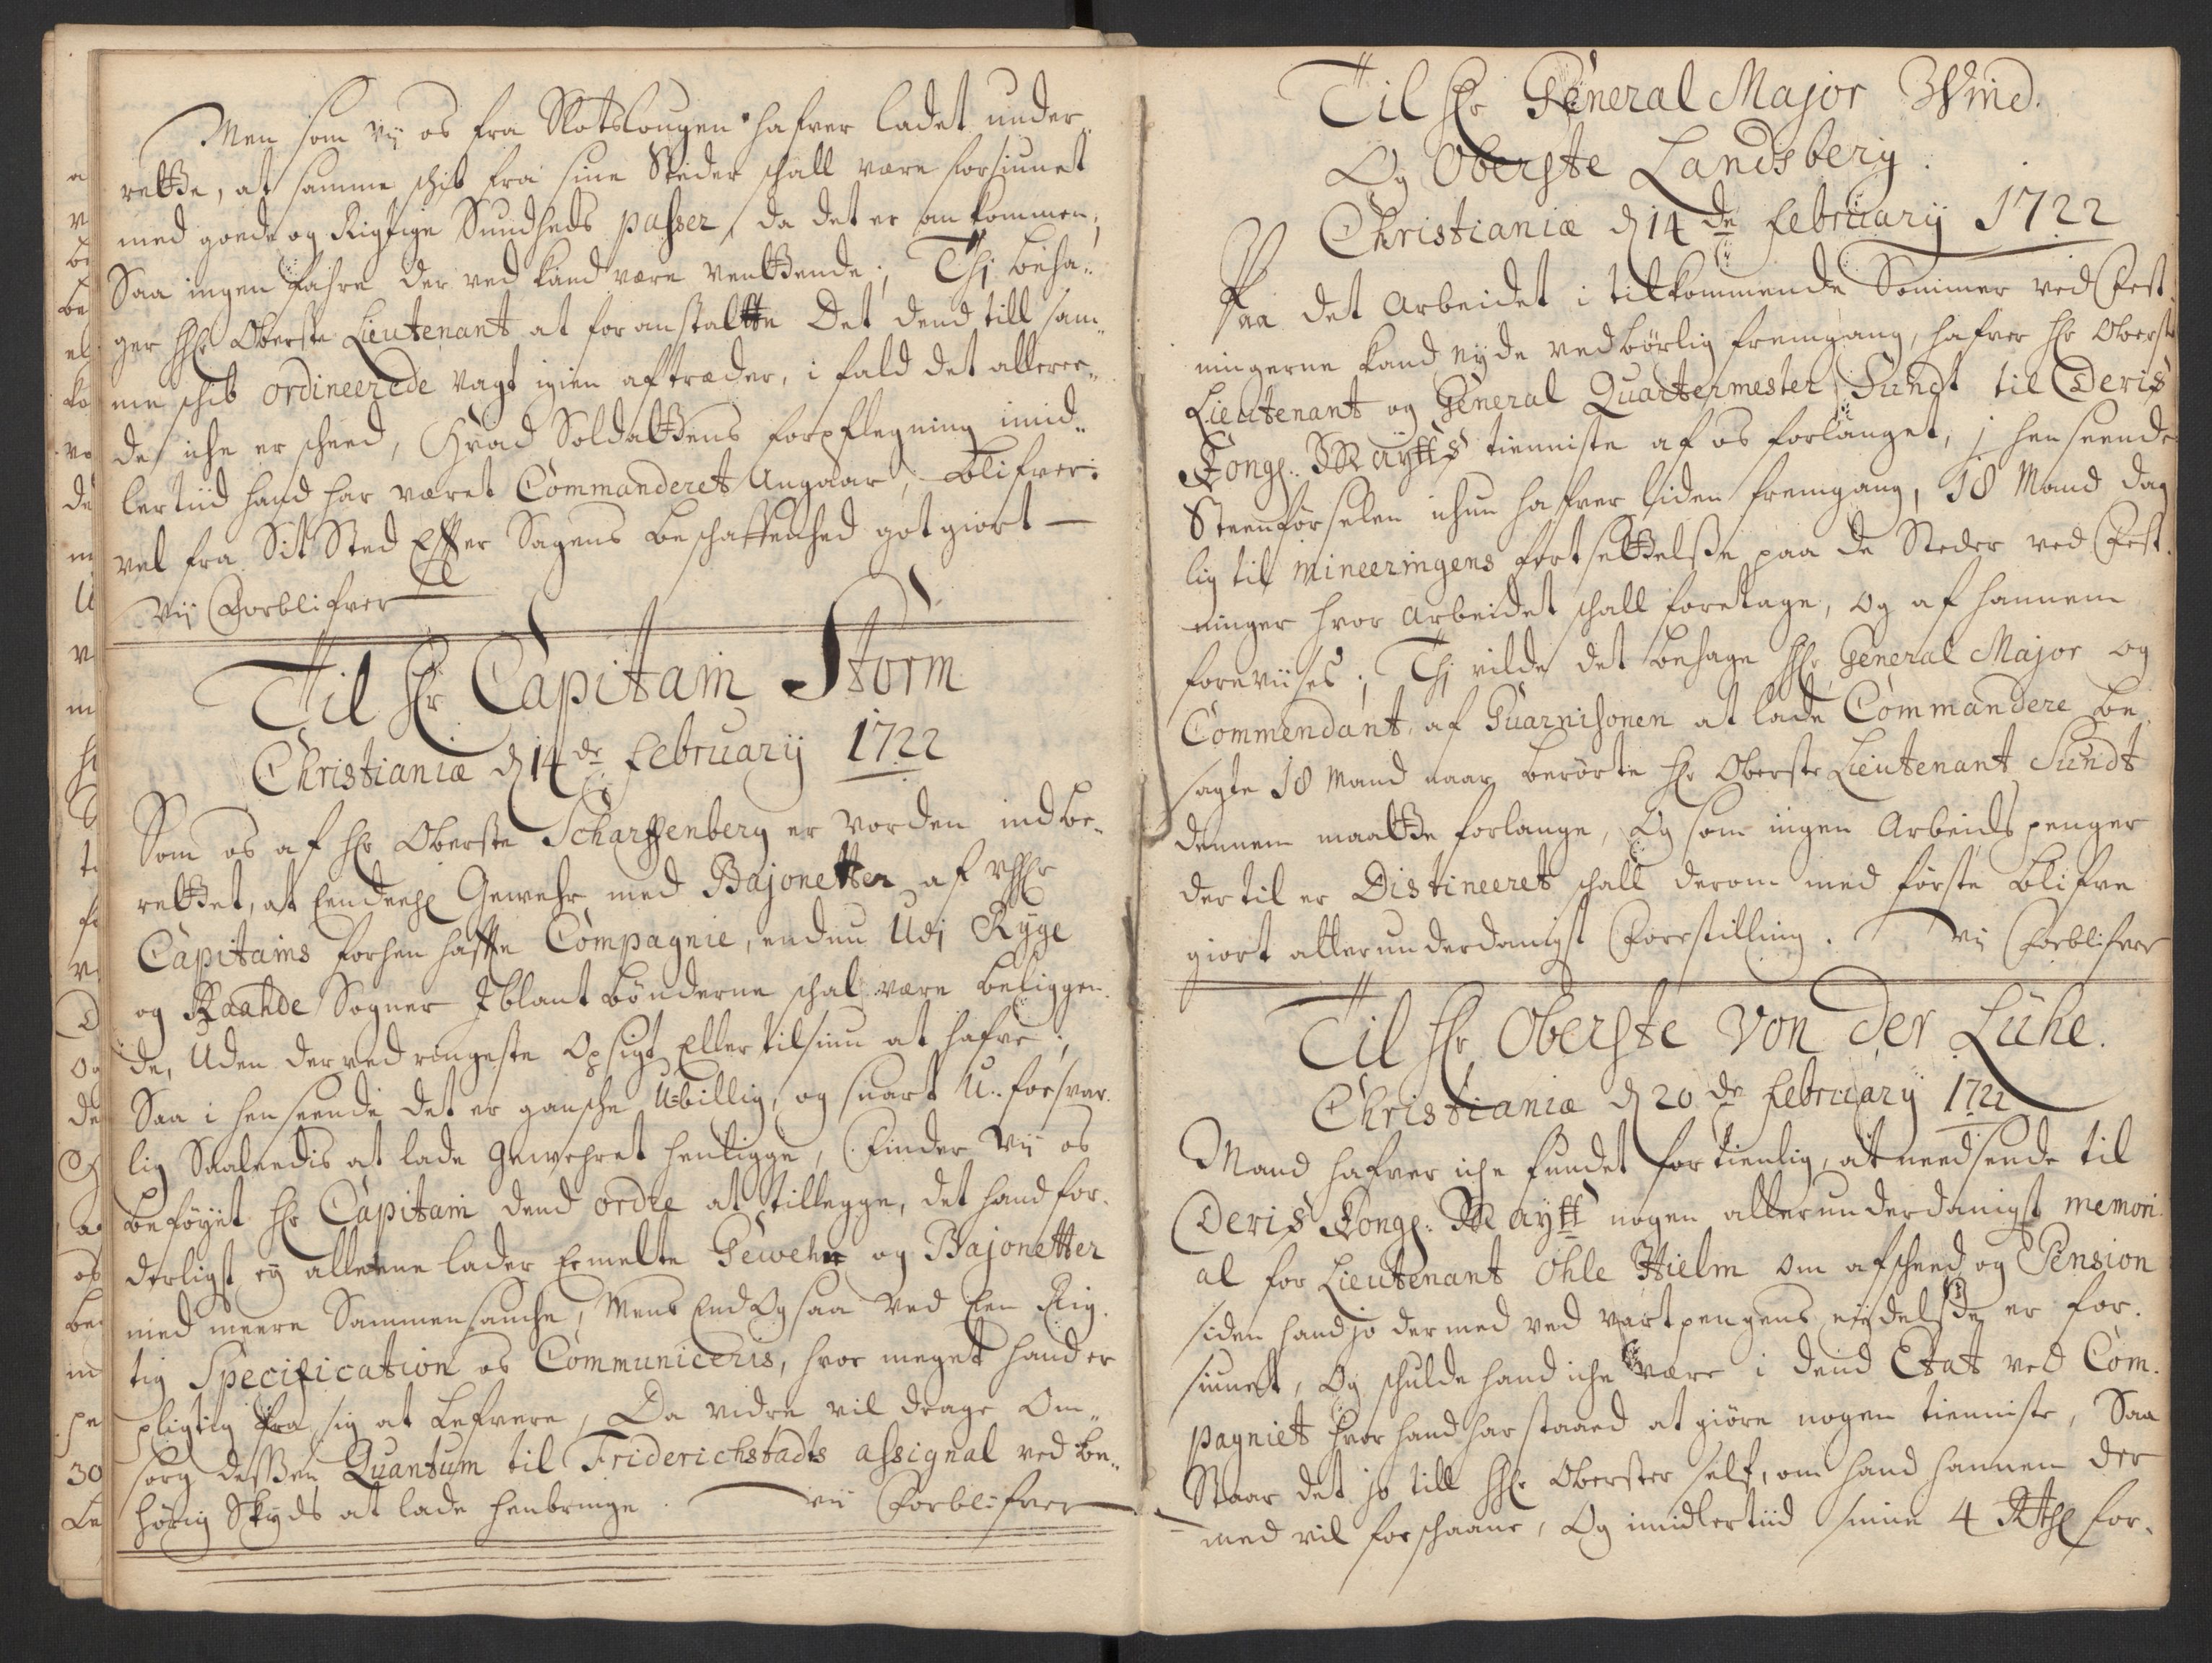 Men som vij os fra Slotslougen hafver ladet under„
rette, at samme schib fra sine Steder schall være forsiunet
med goede og Rigtige Sundheds passer, da det er ankommen,
Saa ingen fahre der ved kand være ventende; Thj beha„
ger Hr Oberste Lieutenant at foranstaltte Det dend till sam„
me schib ordineerede vagt igien aftræder, i fald det alleree„
de iche er scheed, Hvad Soldattens forpflegning imid„
lertiid hand har været Commanderet Angaar, blifver
vel fra Sit Sted Effter Sagens beschaffenhed got giort —
Vij Forblifver
Til Hr Capitain Storm
Christiania d 14de February 1722
Som os af Hr Oberste Scharffenberg er vorden indbe„
rettet, at Eendeehl Gewehr med Bajonetter af Hr
Capitains forhen haffte Compagnie, endnu Udj Ryge
og Raahde Sogner Iblant bønderne schal være beliggen„
de, Uden derved ringeste Opsigt Eller tilsiun at hafve;
Saa i henseende det er gansche U=billig, og snart U..forsvar„
lig Saaleedis at lade Gewehret henligge, Finder Vij os
beføyet Hr Capitain dend ordre at tillegge, det hand for„
derligst ey alleene lader Ermelte Gewehr og Bajonetter
med meere Sammensanche, Mens End Og saa ved Een Rig„
tig Specification os Communiceris, hvor meget hand er
pligtig fra sig at Lefvere, Da vidre vil drage Om„
sorg dessen Quantum til Friderichstadts assignal ved be„
hørig Skyds at lade henbringe. Vij Forblifver
Til Hr General Major Wind.
Og Oberste Landsberg.
Christiania d 14de February 1722
Paa det Arbeidet i tilkommende Sommer ved Fest„
ningerne kand nyde vedbørlig fremgang, hafver Hr Oberste
Lieutenant og General Quartermester Sundt til Deris
Kongl. Maytts tienniste af os forlanget, j henseende
Steenførselen ichun hafver liden fremgang, 18 Mand dag„
lig til Mineeringens fortsettelsse paa de Steder ved Fest„
ninger hvor Arbeidet schall foretage, og af hannem
foreviises; Thj vilde det behage Hr General Major og
Commendant, af Guarnisonen at lade Commandere be„
sagte 18 Mand naar berørte Hr Oberste Lieutenant Sundt
dennem maatte forlange, Og som ingen Arbeids penger
dertil er Distineeret schall derom med første blifve
giort allerunderdanigst Forestilling. Vij Forblifver
Til Hr Oberste Von der Lühe.
Christiania d 20de February 1722
Mand hafver iche fundet fortienlig, at needsende til
Deris Kongl: Maytt nogen allerunderdanigst memori„
al for Lieutenant Ohle Hielm om afscheed og Pension
siden hand jo dermed ved vartpengens nydelsse er for„
siunet, Og schulde hand iche være i dend Etat ved Com„
pagniet hvor hand har staaed at giøre nogen tienniste, Saa
Staar det jo till Hr Oberster self, om hand hannem der
med vil forschaane, Og imidlertiid sine 4 Rthl for„